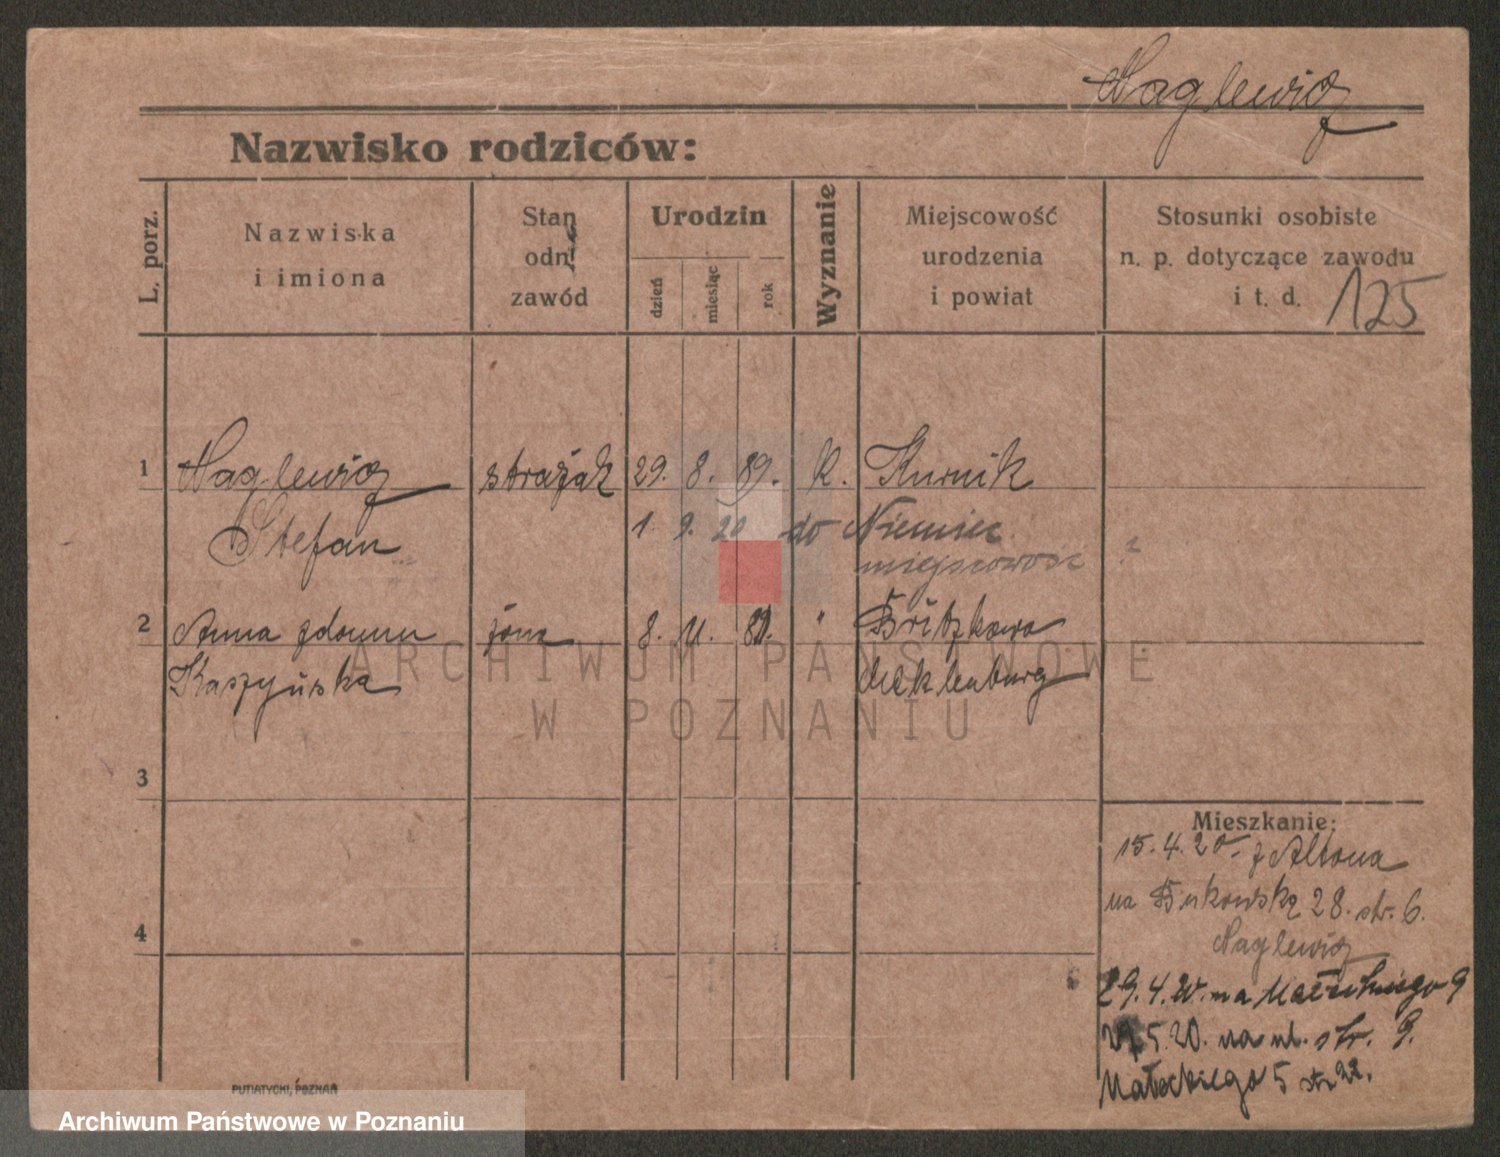 Naglewicz
Nazwisko rodziców:
L. porz.
Nazwiska
i imiona
Stan
odn.
zawód
Urodzin
dzień
miesiąc
rok
Wyznanie
Miejscowość
urodzenia
i powiat
Stosunki osobiste
n. p. dotyczące zawodu
i t. d.
125
1 Naglewicz strażak 29. 8. 89. k. Kurnik
Stefan 1. 9. 20 do Niemiec
miejscowość ?
2 Anna z domu żona 8. 11. " Britzkowo
Kaszyńska Meklenburg
3
4
Mieszkanie:
15.4.20 z Altona
na Bukowską 28. str. 6.
Naglewicz
29.4.20. na 9
5.20. na ul. str. 9.
Małeckiego 5 str 22.
PUTIATYCKI, POZNAŃ
ARCHIWUM PAŃSTWOWE
W POZNANIU
Archiwum Państwowe w Poznaniu